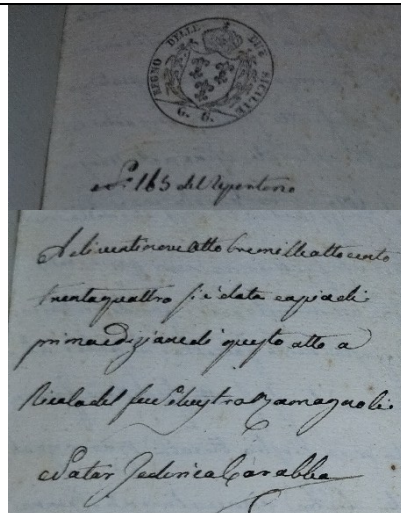 REGNO DELLE DUE SICILIE
G. G.
N.º 165 del Repertorio
A dì ventinove Ottobre mille ottocento
trentaquattro si è data copia di
prima edizione di questo atto a
Nicola del fu Silvestro Romagnoli
Notar Federico Carabba